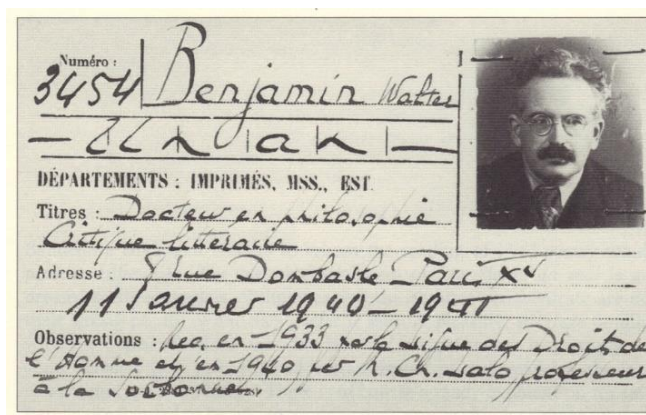 Numéro :
3454 Benjamin Walter
DÉPARTEMENTS : IMPRIMÉS, MSS., EST.
Titres : Docteur en philosophie
Critique litteraire
Adresse : rue Dombasle Paris XV
11 1940 - 1941
Observations : en 1933 Ligue des Droits de
l'Homme et en 1940 par M. Ch. Lalo professeur
à la Sorbonne.